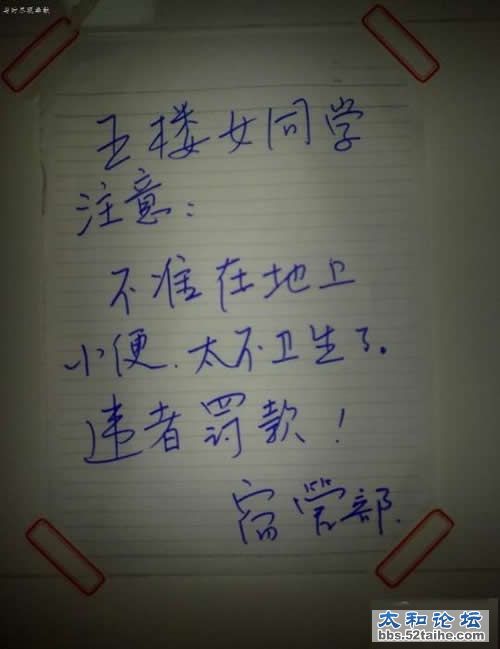 五楼女同学
注意：
不准在地上
小便.太不卫生了。
违者罚款！
宿管部.
太和论坛
bbs.52taihe.com